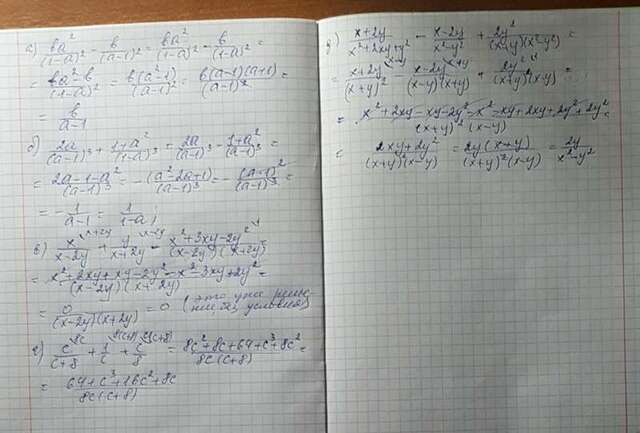 а) ba²/(1-a)² - b/(a-1)² = ba²/(1-a)² - b/(1-a)² =
= ba²-b/(1-a)² = b(a²-1)/(1-a)² = b(a-1)(a+1)/(a-1)² =
= b/a-1
б) 2a/(a-1)³ + 1+a²/(1-a)³ = 2a/(a-1)³ - 1+a²/(a-1)³ =
= 2a-1-a²/(a-1)³ = -(a²-2a+1)/(a-1)³ = -(a-1)²/(a-1)³ =
= -1/a-1 = 1/1-a
в) x/x-2y + y/x+2y - x²+3xy-2y²/(x-2y)(x+2y) =
= x²+2xy+xy-2y²-x²-3xy+2y²/(x-2y)(x+2y) =
= 0/(x-2y)(x+2y) = 0 (это уже реше
ние без условия)
г) c/c+8 + 1/c + c/8 = 8c²+8c+64+c³+8c²/8c(c+8) =
= 64+c³+16c²+8c/8c(c+8)
д) x+2y/x²+2xy+y² - x-2y/x²-y² + 2y²/(x+y)(x²-y²) =
= x+2y/(x+y)² - x-2y/(x-y)(x+y) + 2y²/(x+y)²(x-y) =
= x²+2xy-xy-2y²-x²-xy+2xy+2y²+2y²/(x+y)²(x-y) =
= 2xy+2y²/(x+y)²(x-y) = 2y(x+y)/(x+y)²(x-y) = 2y/x²-y²